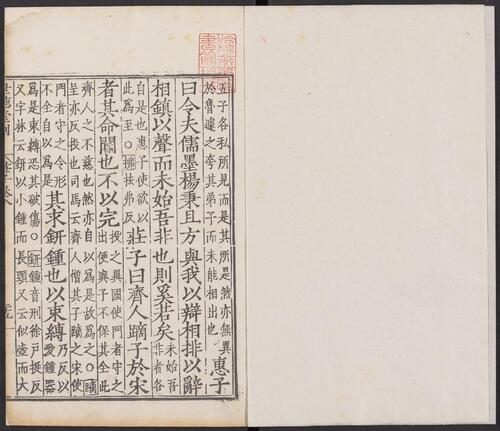 五子各私所見而是其所是然亦無異
於魯遽之夸其弟子而未能相出也
惠子
曰今夫儒墨楊秉且方與我以辯相排以辭
相鎮以聲而未始吾非也則奚若矣
未始吾
非者各
自是也惠子使欲以
此爲至○拂扶弗反
莊子曰齊人蹢子於宋
者其命閽也不以完
投之異國使門者守之
出便與子不保其全此
齊人之不慈也然亦自以爲是故爲之○蹢
呈亦反投也司馬云齊人憎其子蹢之宋使
門者守之令形
不全自以爲是
其求鈃鍾也以束縛
乃反以
愛鍾器
爲是束縛恐其破傷○鈃鍾音刑徐戶挺反
又字林云鈃似小鍾而長頸又云似壺而大
世德堂刊